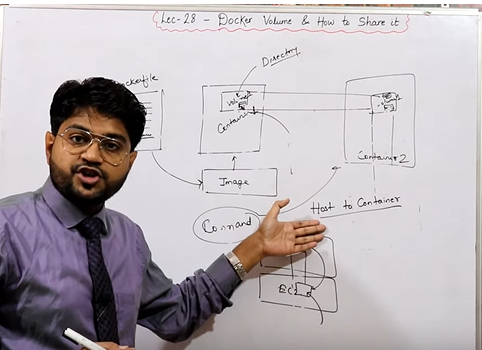 Lec-28 - Docker Volume & How to Share it
Directory
Container
Container 2
Image
Command
Host to Container
EC2